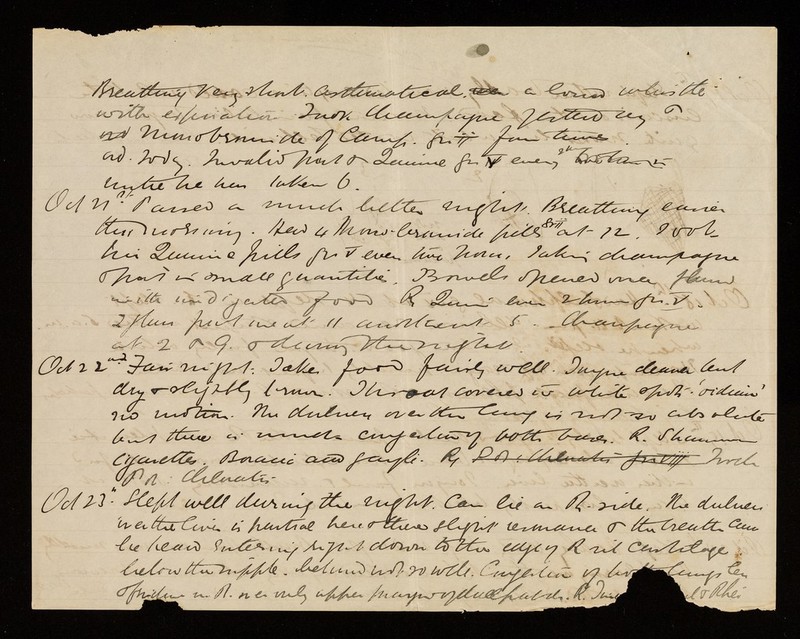 Breathing very short. asthmatical. a loud whistle
with expiration Took Champagne yesterday &
Monobromide of Camp. gr iij four times.
ad. today. Invalid port & Quinine gr v every 2nd hour
until he has taken 6.
Oct 21st Passed a much better night. Breathing easier
this morning. Had 4 Monobromide pills gr iij at 12. Took
his Quinine pills gr v every two hours, taking champagne
& port in small quantities. Bowels opened once
with undigested food Rx Quin every 2 hours gr. v.
2 glass port one at 11 another at 5. Champagne
at 2 & 9. & during the night.
Oct 22nd Fair night. Takes food fairly well. Tongue cleaner but
dry & slightly brown. Throat covered w white spots 'oidium'
no motion. The dulness over the lung is not so absolute
but there is much congestion of both bases. R.
Cigarettes. Boracic acid gargle. Rx
Pot: Chloratis
Oct 23rd Slept well during the night. Can lie on R. side. The dulness
over the liver is partial here & there slight resonance & the breath can
be heard entering right down to the edge of R rib cartilage
below the nipple. behind not so well. Congestion of both lungs less
in R. over only upper margin of dull patch. R. & Rhei